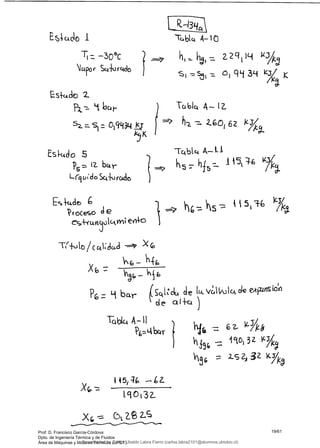 R-134a
Estado 1
Tabla A-10
T₁ = -30°C
Vapor Saturado
h₁ = hg₁ = 229,14 KJ/kg
S₁ = Sg₁ = 0,9434 KJ/kg K
Estado 2
P₂ = 4 bar
S₂ = S₁ = 0,9434 KJ/kgK
Tabla A-12
h₂ = 260,62 KJ/kg
Estado 5
P₅ = 12 bar
Líquido Saturado
Tabla A-11
h₅ = hf₅ = 115,76 KJ/kg
Estado 6
Proceso de
estrangulamiento
h₆ = h₅ = 115,76 KJ/kg
Título/calidad ⇒ X₆
X₆ = (h₆ - hf₆) / (hg₆ - hf₆)
P₆ = 4 bar (Salida de la válvula de expansión de alta)
Tabla A-11
P₆ = 4 bar
hf₆ = 62 KJ/kg
hfg₆ = 190,32 KJ/kg
hg₆ = 252,32 KJ/kg
X₆ = (115,76 - 62) / 190,32
X₆ = 0,2825
Prof. D. Francisco García-Córdova
Dpto. de Ingeniería Térmica y de Fluidos
19/61